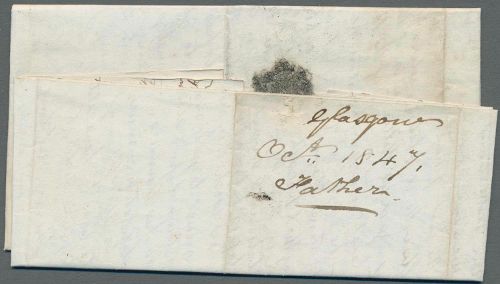 Glasgow
Oct. 1847,
Father